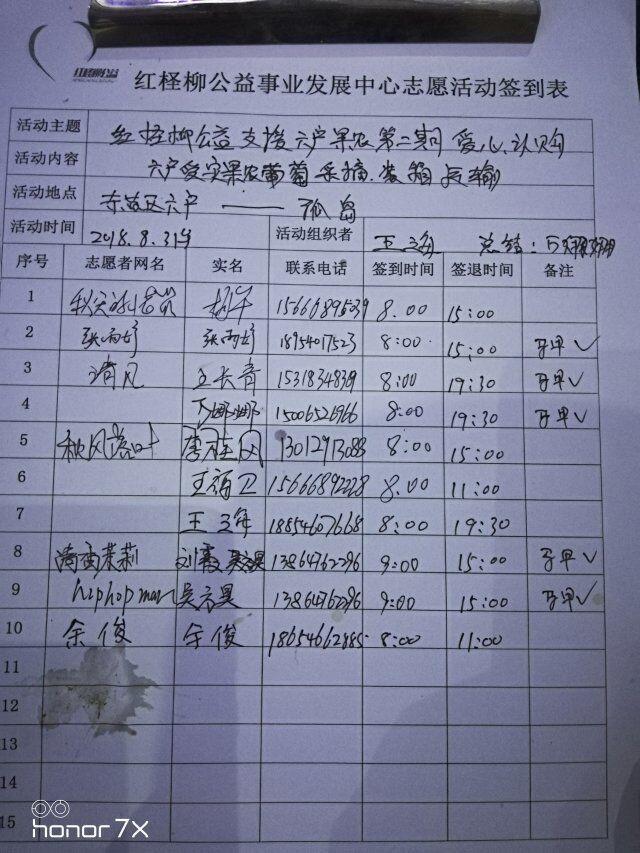 红柽柳公益事业发展中心志愿活动签到表
活动主题 红柽柳公益支援六户果农第二期爱心认购
活动内容 六户受灾果农葡萄采摘.装箱运输
活动地点 东营区六户 —— 孤岛
活动时间 2018.8.31日 活动组织者 王海 总结:
序号 志愿者网名 实名 联系电话 签到时间 签退时间 备注
1 8.00 15:00
2 张雨婷 张雨婷 18954017523 8:00 15:00 马甲✓
3 清风 王长青 8:00 19:30 马甲✓
4 丁娜娜 15006526966 8:00 19:30 马甲✓
5 秋风落叶 李桂凤 13012913088 8:00 15:00
6 王福卫 15666892228 8.00 11:00
7 王海 18854607668 8:00 19:30
8 清香茉莉 刘霞 吴方昊 13864762296 9:00 15:00 马甲✓
9 hiphopman 吴方昊 13864762296 9:00 15:00 马甲✓
10 余俊 余俊 18654662885 8:00 11:00
11
12
13
14
15
honor 7X